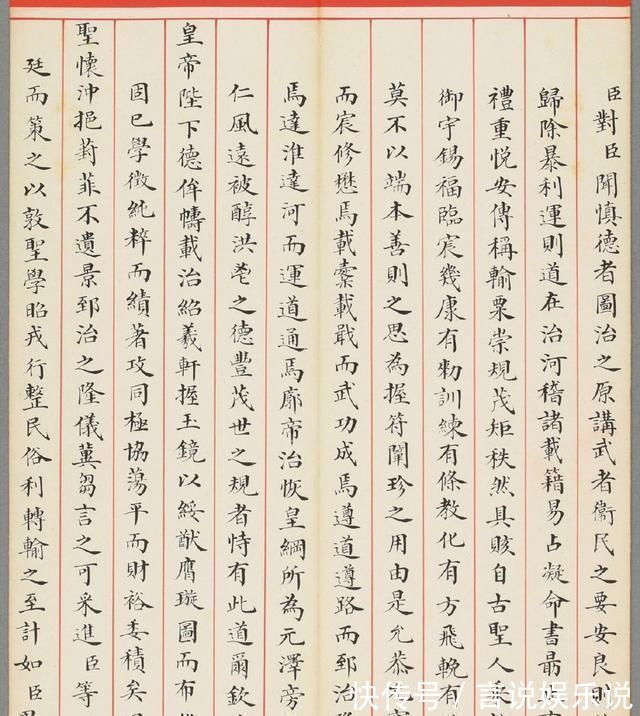 臣對臣聞慎德者圖治之原講武者衞民之要安良
歸除暴利運則道在治河稽諸載籍易占凝命書勗
禮重悅安傳稱輸粟崇規茂矩秩然具賅自古聖人
御宇錫福臨宸幾康有勑訓練有條教化有方飛輓有
莫不以端本善則之思為握符闡珍之用由是允恭
而宸修懋焉載櫜載戢而武功成焉遵道遵路而郅治
焉達淮達河而運道通焉廓帝治恢皇綱所為元澤旁
仁風遠被醇洪鬯之德豐茂世之規者恃有此道爾欽
皇帝陛下德侔幬載治紹羲軒握玉鏡以綏猷膺璇圖而布
固已學徵純粹而績著攻同極協蕩平而財裕委積矣
聖懷沖挹葑菲不遺景郅治之隆儀冀芻言之可采進臣等
廷而策之以敦聖學昭戎行整民俗利轉輸之至計如臣
快传号/言说娱乐说